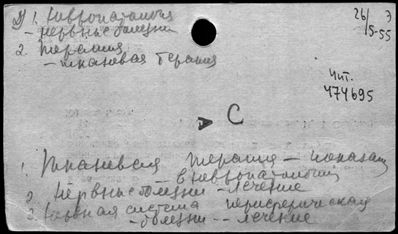 1. Невропатология
- нервные болезни
2. Терапия
- тканевая терапия
26/5-55
Э
Чит.
474695
С
1. Тканевая терапия - показан
- в невропатологии
2. Нервные болезни - лечение
3. Нервная система периферическая
- болезни - лечение